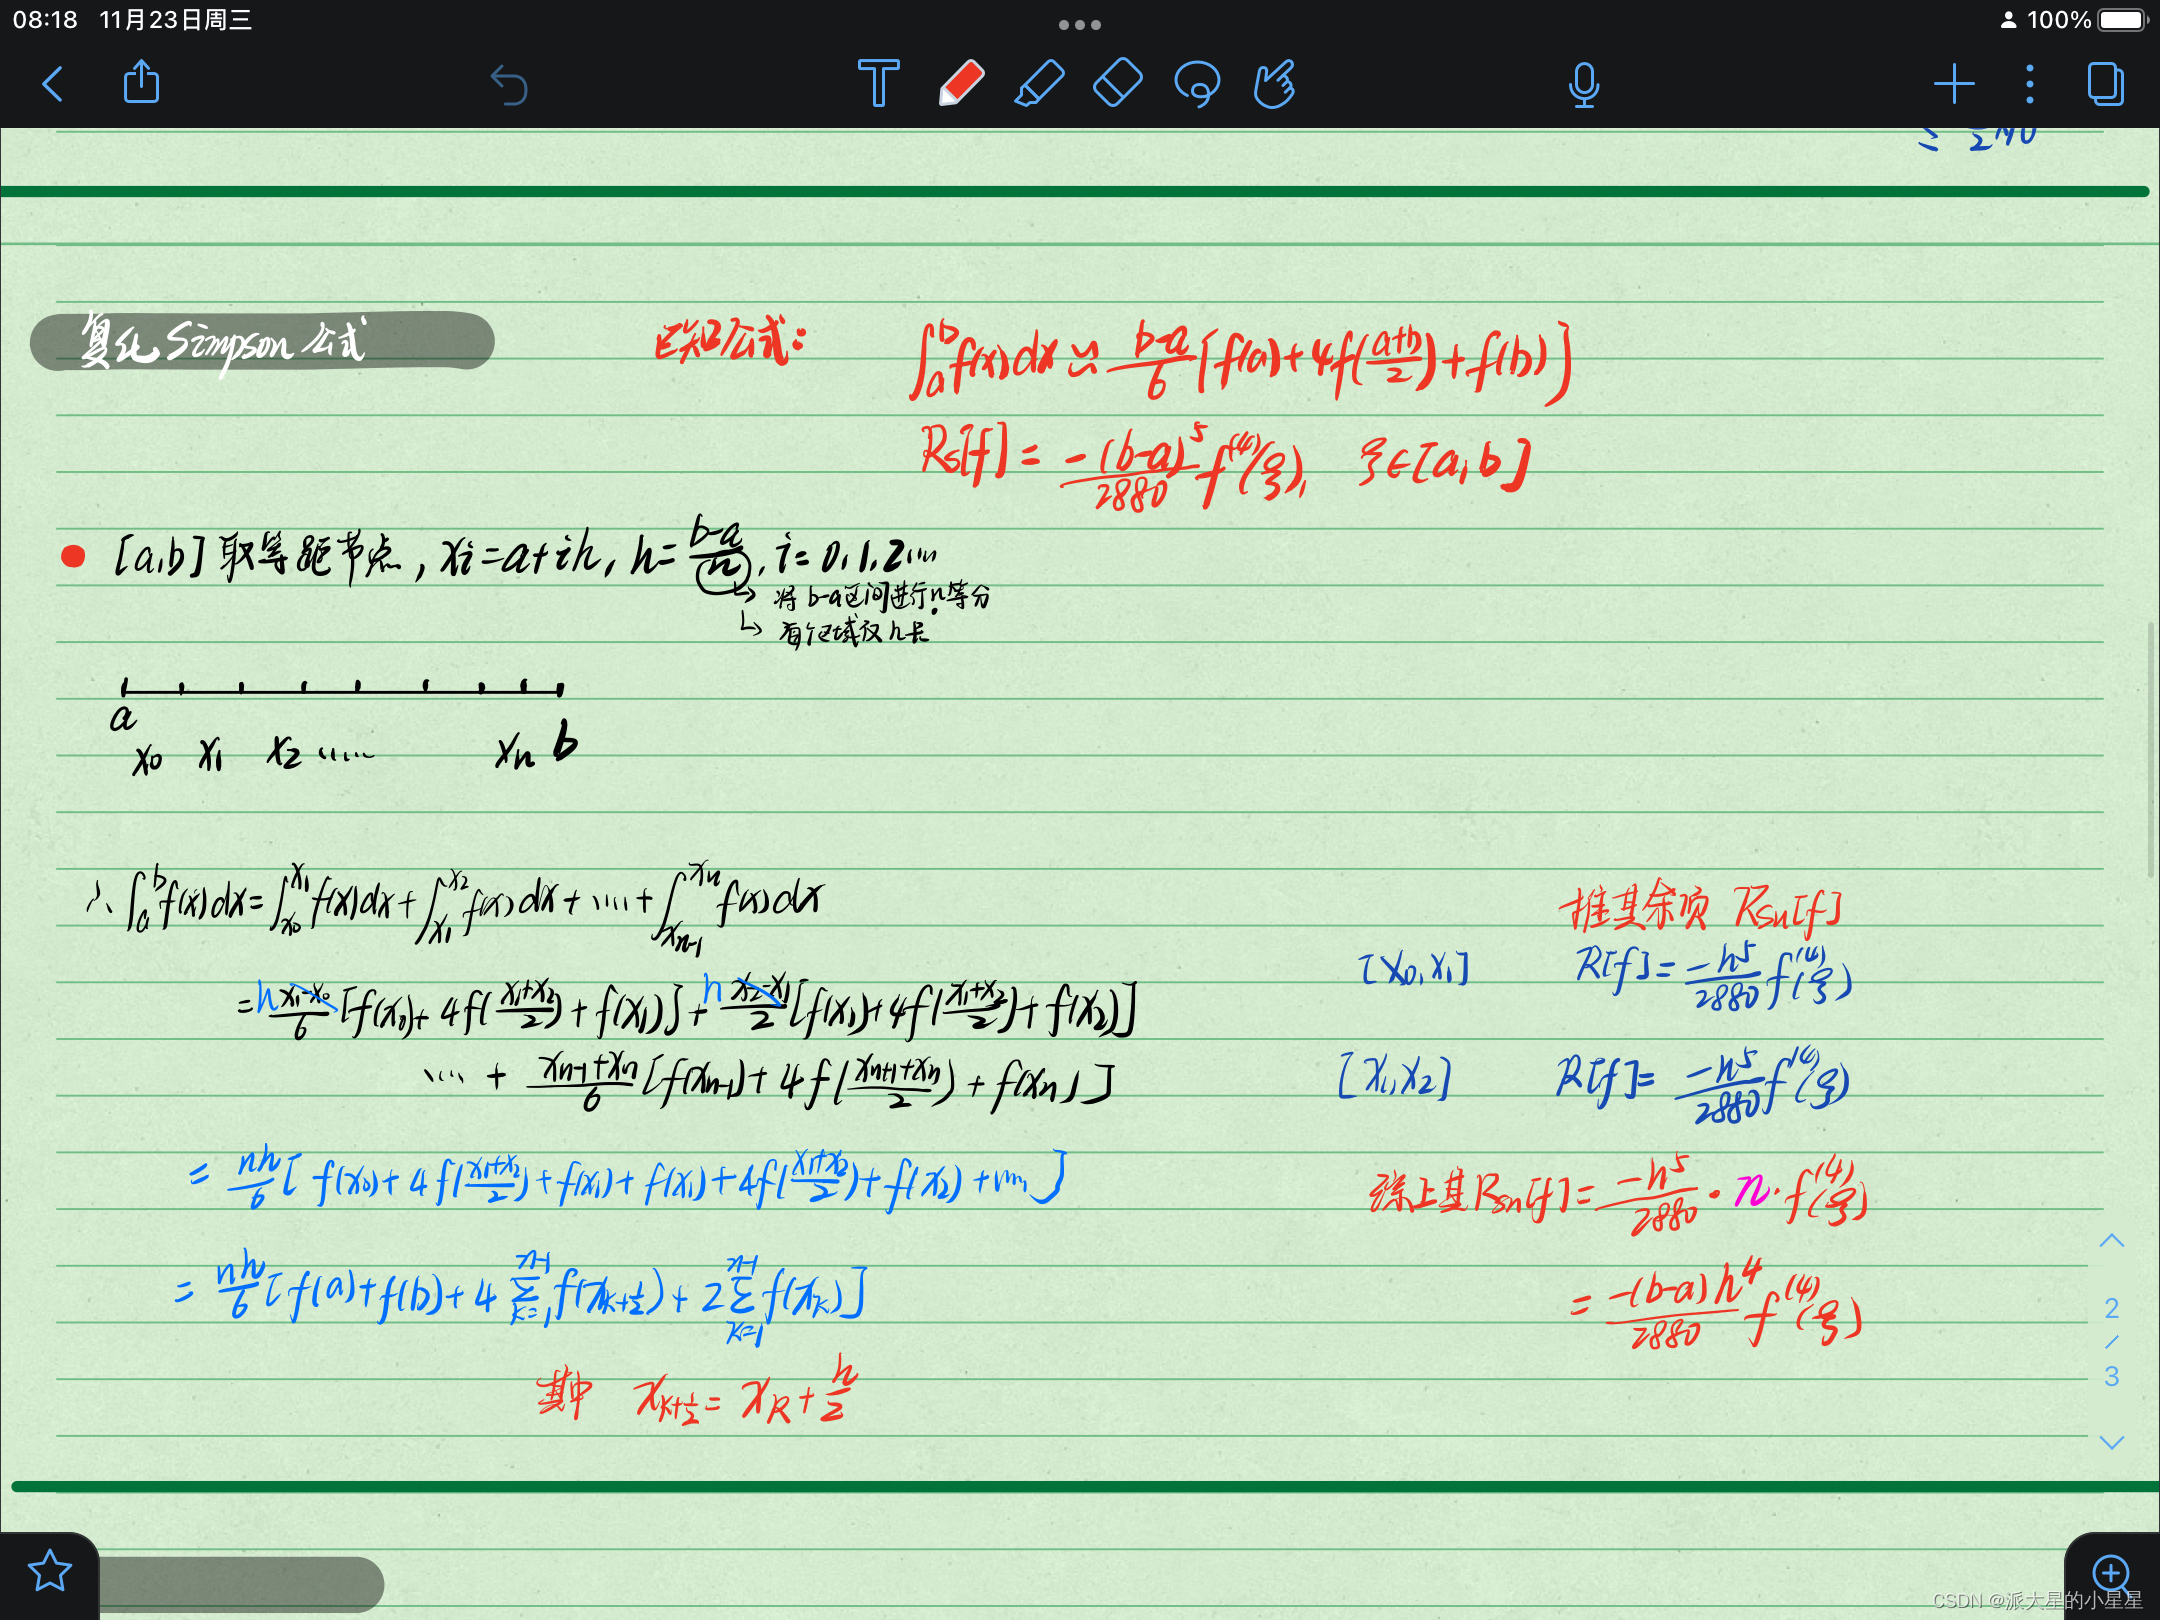 08:18 11月23日周三
100%
= 2880
复化Simpson公式
已知公式:
∫_a^b f(x)dx ≈ (b-a)/6 [f(a)+4f((a+b)/2)+f(b)]
Rs[f] = -(b-a)^5/2880 f^(4)(ξ), ξ∈[a,b]
[a,b]取等距节点, xi=a+ih, h=(b-a)/n, i=0,1,2…n
→ 将b-a区间进行n等分
↳ 每个区域仅h长
a
x0 x1 x2 …… xn b
∴ ∫_a^b f(x)dx = ∫_{x0}^{x1} f(x)dx + ∫_{x1}^{x2} f(x)dx + …… + ∫_{xn-1}^{xn} f(x)dx
= h (x1-x0)/6 [f(x0)+4f((x1+x2)/2)+f(x1)] + h (x2-x1)/2 [f(x1)+4f((x1+x2)/2)+f(x2)]
…… + (xn-1+xn)/6 [f(xn-1)+4f((xn+1+xn)/2)+f(xn)]
= nh/6 [f(x0)+4f((x1+x2)/2)+f(x1)+f(x1)+4f((x1+x2)/2)+f(x2)+……]
= nh/6 [f(a)+f(b)+4 Σ_{k=1}^{n-1} f(x_{k+1/2}) + 2 Σ_{k=1}^{n-1} f(xk)]
其中 x_{k+1/2} = xk + h/2
推其余项 Rsn[f]
[x0,x1] R[f] = -h^5/2880 f^(4)(ξ)
[x1,x2] R[f] = -h^5/2880 f^(4)(ξ)
综上其Rsn[f] = -h^5/2880 · n · f^(4)(ξ)
= -(b-a)h^4/2880 f^(4)(ξ)
2
/
3
CSDN @派大星的小星星